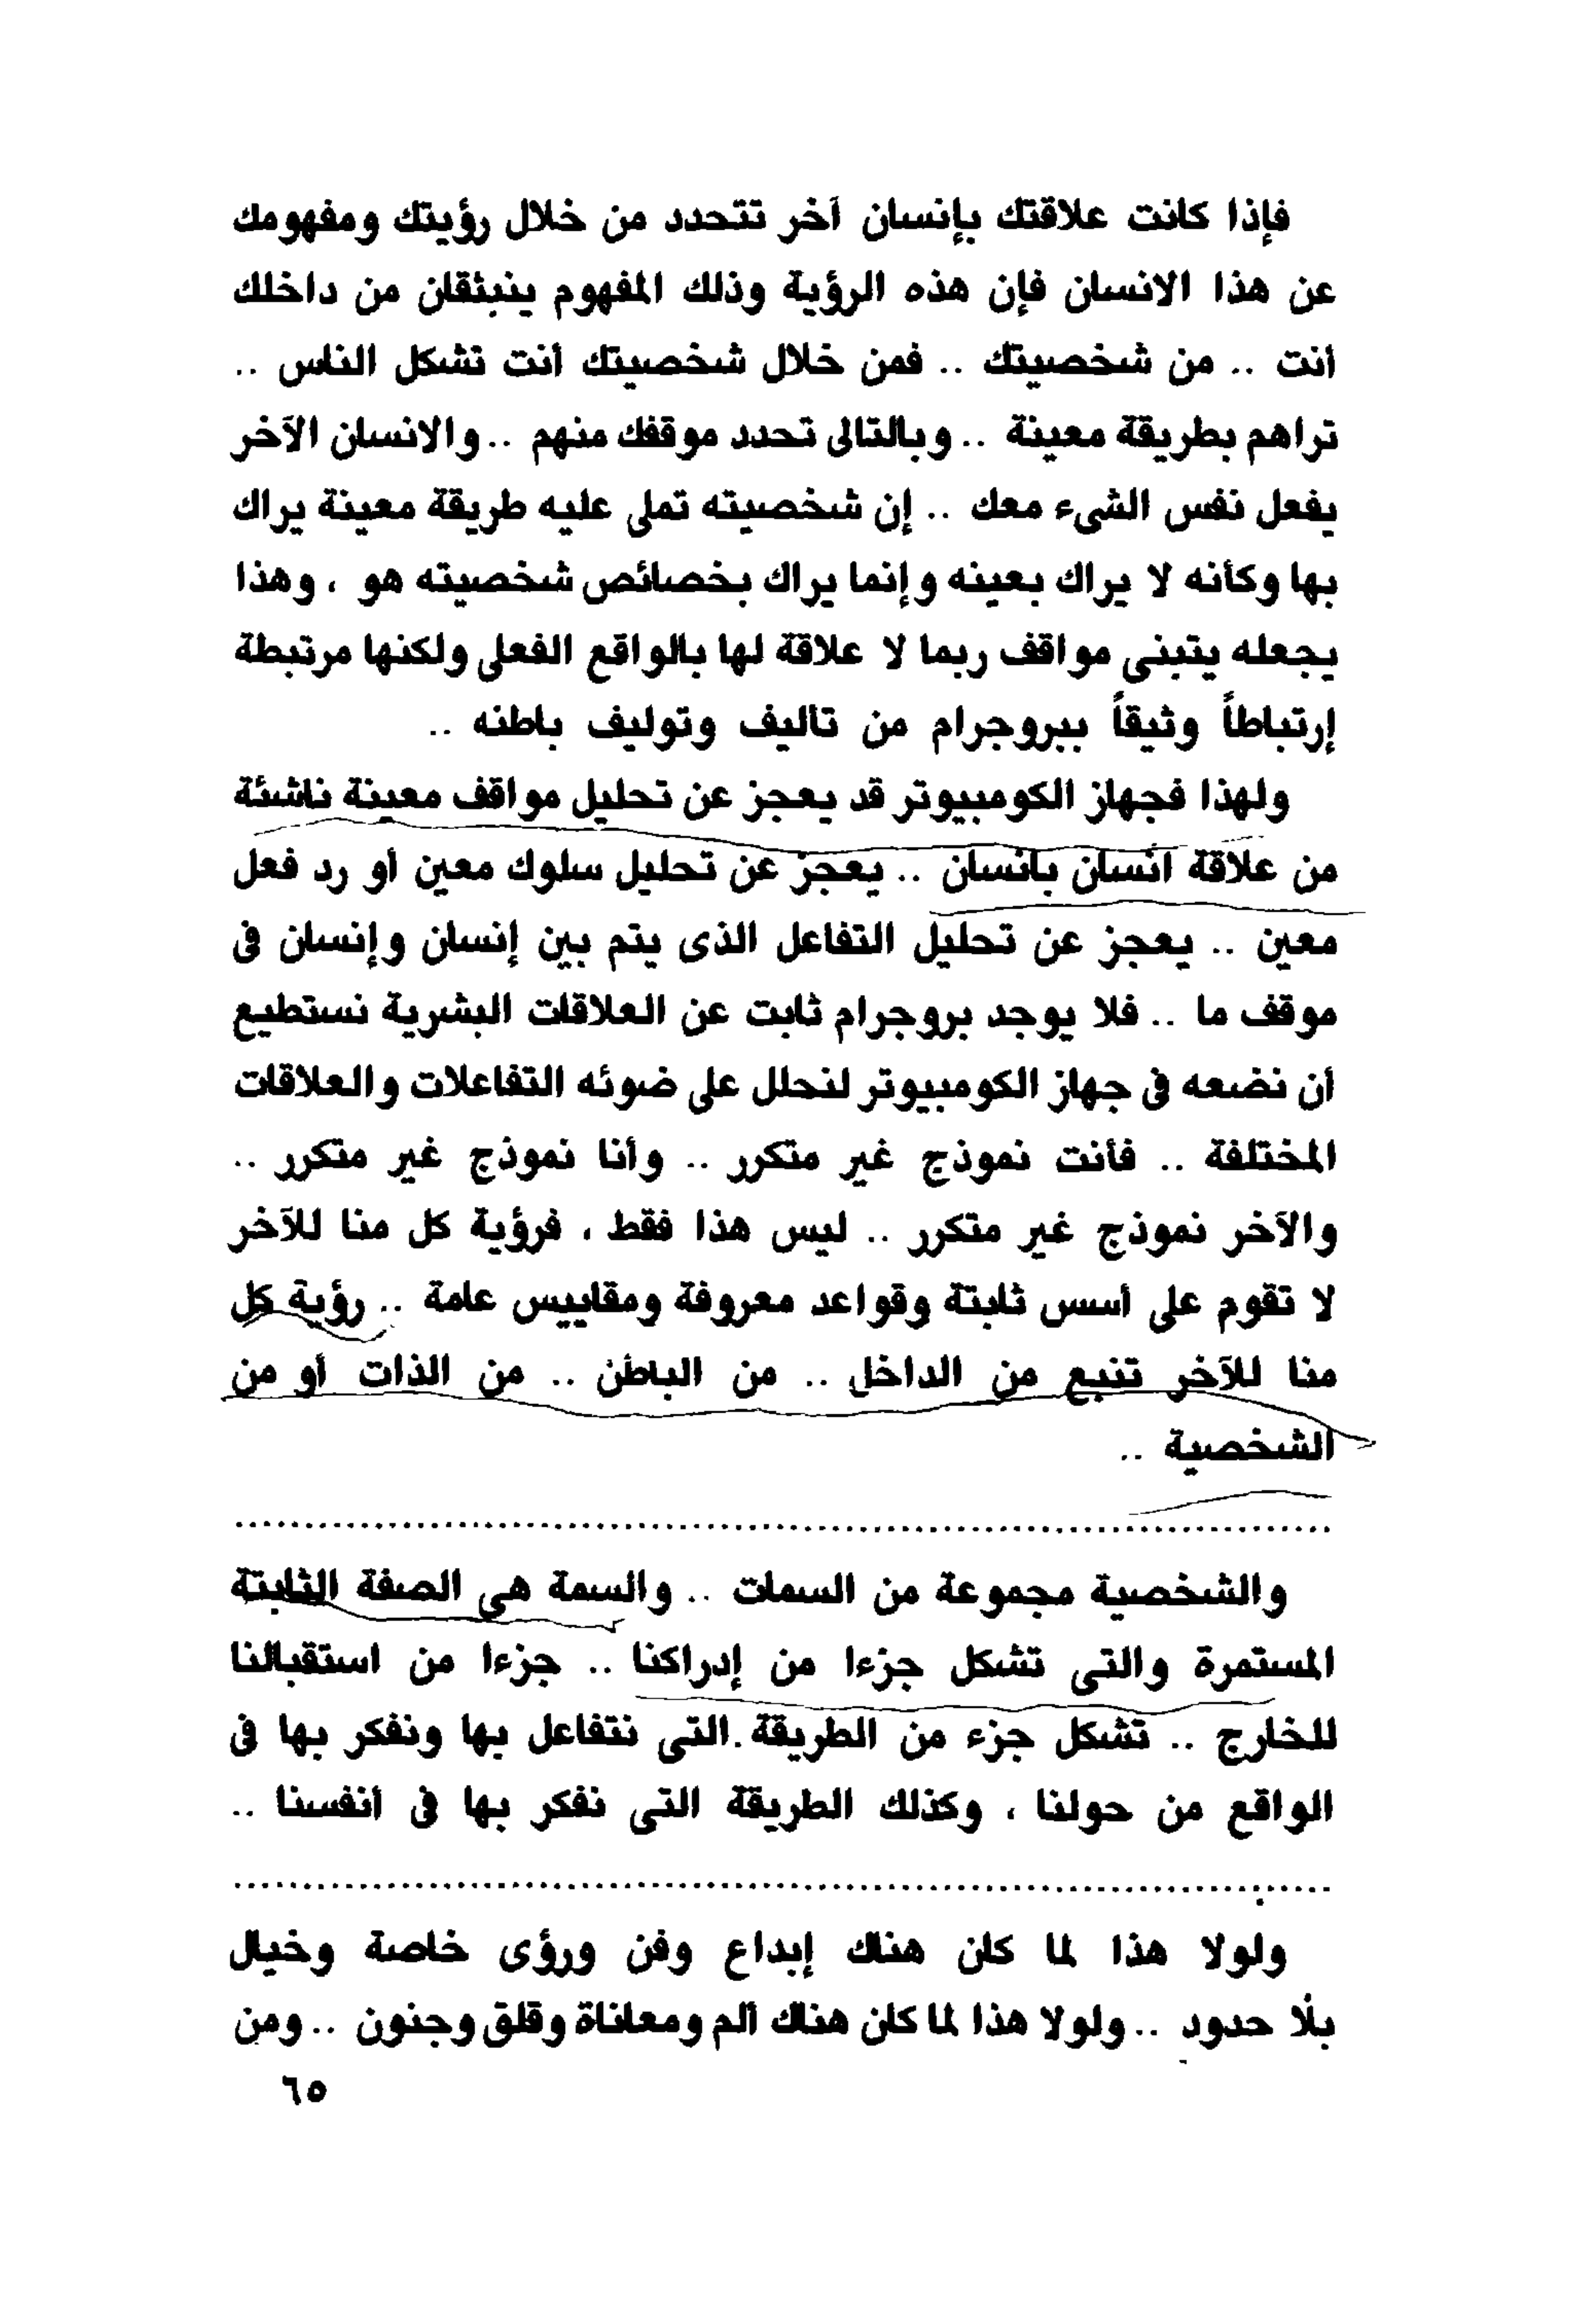 فإذا كانت علاقتك بإنسان آخر تتحدد من خلال رؤيتك ومفهومك
عن هذا الانسان فإن هذه الرؤية وذلك المفهوم ينبثقان من داخلك
أنت .. من شخصيتك .. فمن خلال شخصيتك أنت تشكل الناس ..
تراهم بطريقة معينة .. وبالتالى تحدد موقفك منهم .. والانسان الآخر
يفعل نفس الشىء معك .. إن شخصيته تملى عليه طريقة معينة يراك
بها وكأنه لا يراك بعينه وإنما يراك بخصائص شخصيته هو ، وهذا
يجعله يتبنى مواقف ربما لا علاقة لها بالواقع الفعلى ولكنها مرتبطة
إرتباطاً وثيقاً ببروجرام من تأليف وتوليف باطنه ..
ولهذا فجهاز الكومبيوتر قد يعجز عن تحليل مواقف معينة ناشئة
من علاقة انسان بانسان .. يعجز عن تحليل سلوك معين أو رد فعل
معين .. يعجز عن تحليل التفاعل الذى يتم بين إنسان وإنسان فى
موقف ما .. فلا يوجد بروجرام ثابت عن العلاقات البشرية نستطيع
أن نضعه فى جهاز الكومبيوتر لنحلل على ضوئه التفاعلات والعلاقات
المختلفة .. فأنت نموذج غير متكرر .. وأنا نموذج غير متكرر ..
والآخر نموذج غير متكرر .. ليس هذا فقط ، فرؤية كل منا للآخر
لا تقوم على أسس ثابتة وقواعد معروفة ومقاييس عامة .. رؤية كل
منا للآخر تنبع من الداخل .. من الباطن .. من الذات أو من
الشخصية ..
................................................................................
والشخصية مجموعة من السمات .. والسمة هى الصفة الثابتة
المستمرة والتى تشكل جزءا من إدراكنا .. جزءا من استقبالنا
للخارج .. تشكل جزء من الطريقة التى نتفاعل بها ونفكر بها فى
الواقع من حولنا ، وكذلك الطريقة التى نفكر بها فى أنفسنا ..
................................................................................
ولولا هذا لما كان هناك إبداع وفن ورؤى خاصة وخيال
بلا حدود .. ولولا هذا لما كان هناك ألم ومعاناة وقلق وجنون .. ومن
٦٥